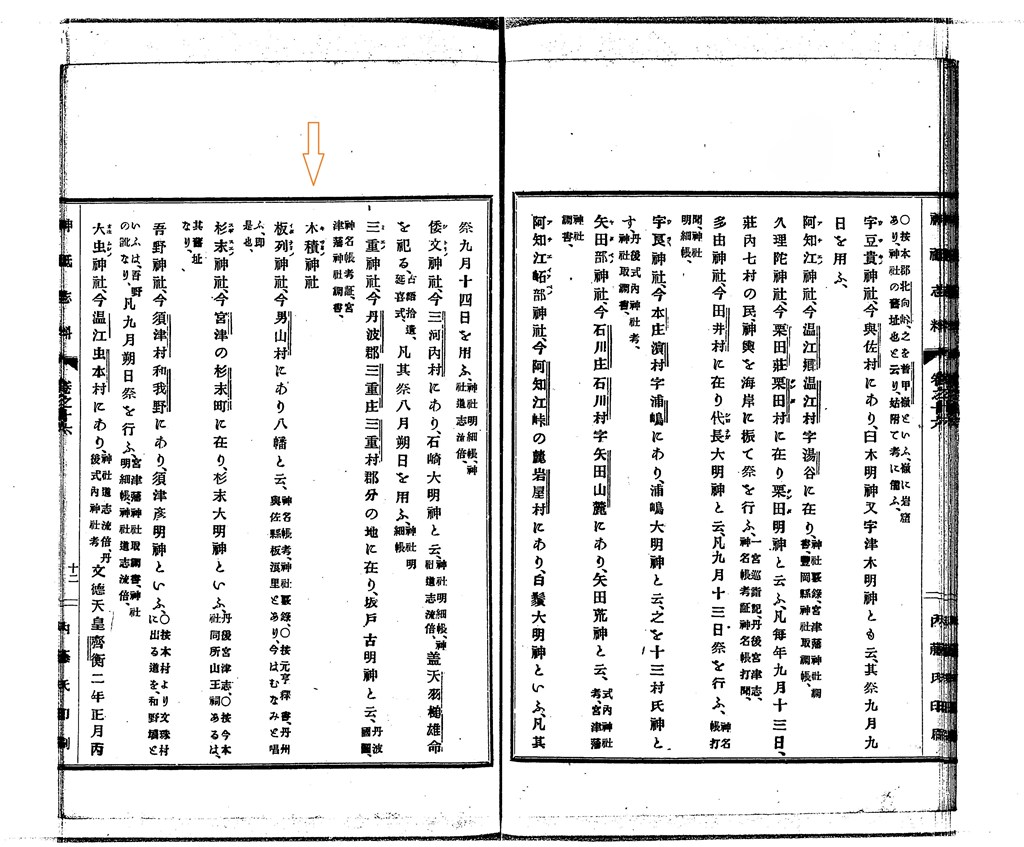 〇按本郡北向岭、之を首甲嶽といふ、嶽に岩窟
あり、神社の舊址也と云り、姑附て考に備ふ、
宇豆貴神社、今與佐村にあり、臼木明神又字津木明神とも云、其祭九月九
日を用ふ、
阿知江神社、今温江郷温江村字湯谷に在り、神社覈錄、宮津藩神社調書、豐岡縣神社取調帳、
久理陀神社、今栗田莊栗田村に在り栗田明神と云ふ、凡毎年九月十三日、
莊內七村の民、神輿を海岸に振て祭を行ふ、一宮巡詣記、丹後宮津志、神名帳考証、神名帳打聞、
多由神社、今田井村に在り代長大明神と云、凡九月十三日祭を行ふ、神名帳打
聞、神社明細帳、
宇良神社、今本庄濱村字浦嶋にあり、浦嶋大明神と云、之を十三村氏神と
す、丹後式內神社考、神社取調書、
矢田部神社、今石川庄石川村字矢田山麓にあり、矢田荒神と云、式內神社考、宮津藩
神社調書、
阿知江岾部神社、今阿知江峠の麓岩屋村にあり、白鬚大明神といふ、凡其
神祇志料 卷之十六 內藤氏印刷
祭九月十四日を用ふ、神社明細帳、神社道志流倍、
倭文神社、今三河內村にあり、石崎大明神と云、神社明細帳、神社道志流倍、蓋天羽槌雄命
を祀る、古語拾遺、延喜式、凡其祭八月朔日を用ふ、神社明細帳
三重神社、今丹波郡三重庄三重村郡分の地に在り、坂戶古明神と云、丹波國圖、
神名帳考証、宮津藩神社調書、
木積神社
板列神社、今男山村にあり八幡と云、神名帳考、神社覈錄、〇按元亨釋書、丹州與佐縣板浪里とあり、今はむなみと唱
ふ、即是也、
杉末神社、今宮津の杉末町に在り、杉末大明神といふ、丹後宮津志、〇按今本社同所山王祠あるは、
其舊址なり、
吾野神社、今須津村和我野にあり、須津彥明神といふ、〇按本村より文珠村に出る道を、和野墳と
いふは、吾野の訛なり、凡九月朔日祭を行ふ、宮津藩神社取調書、神社明細帳、神社道志流倍、
大虫神社、今温江虫本村にあり、神社道志流倍、丹後式內神社考 文德天皇齊衡二年正月丙
神祇志料 卷之十六 十二 內藤氏印刷